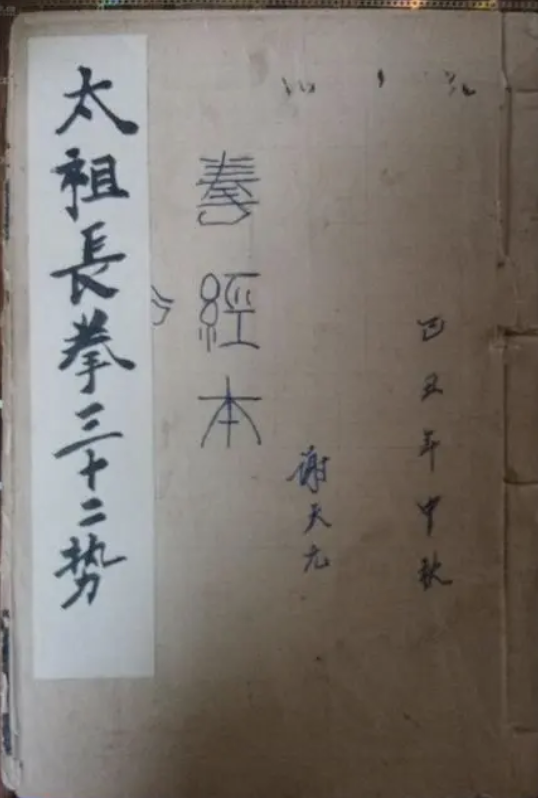 己丑年中秋
谢天元
拳經本
太祖長拳三十二势